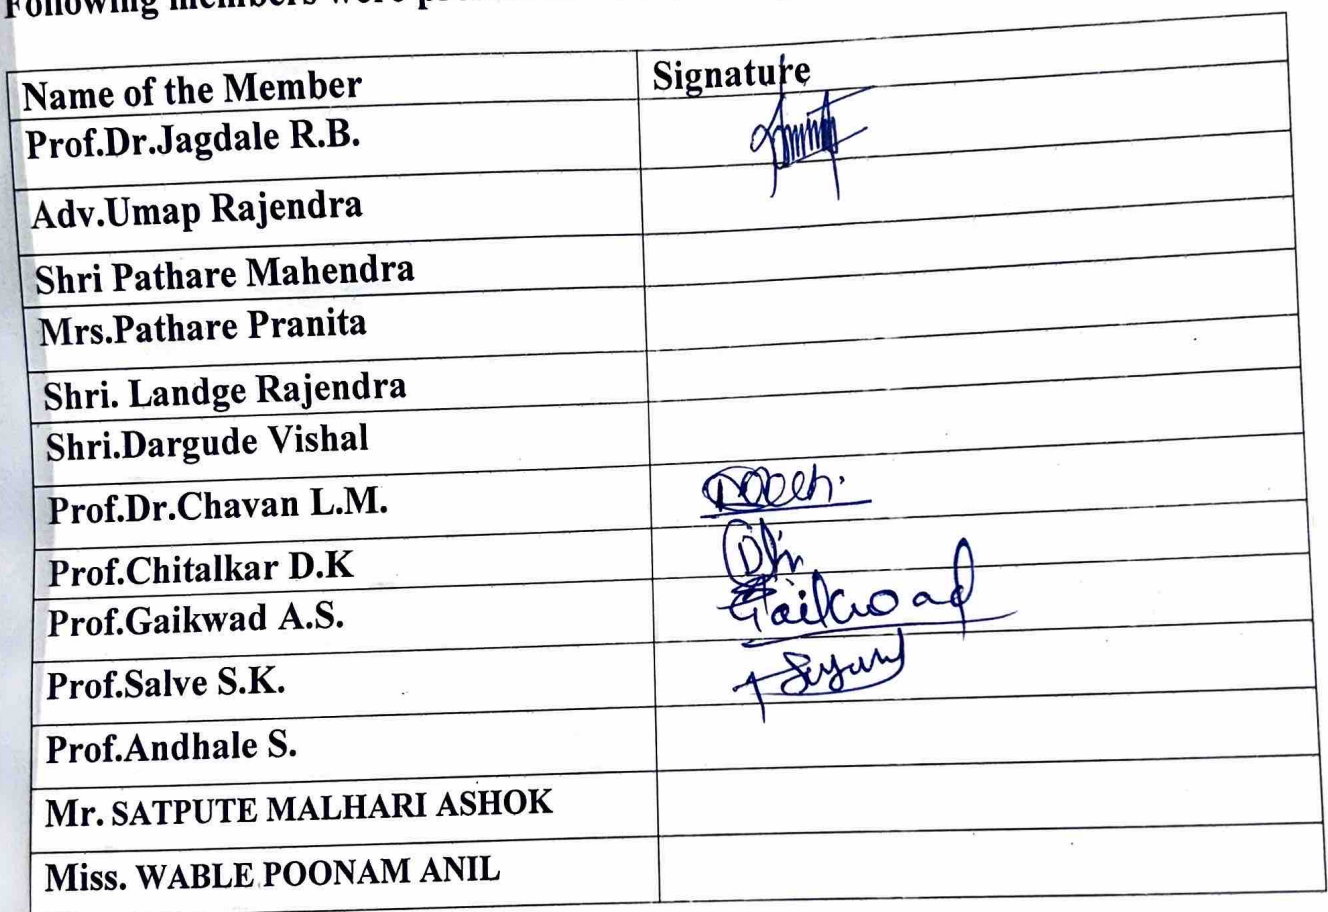 Following members were
Name of the Member Signature
Prof.Dr.Jagdale R.B.
Adv.Umap Rajendra
Shri Pathare Mahendra
Mrs.Pathare Pranita
Shri. Landge Rajendra
Shri.Dargude Vishal
Prof.Dr.Chavan L.M.
Prof.Chitalkar D.K
Prof.Gaikwad A.S. Gaikwad
Prof.Salve S.K.
Prof.Andhale S.
Mr. SATPUTE MALHARI ASHOK
Miss. WABLE POONAM ANIL